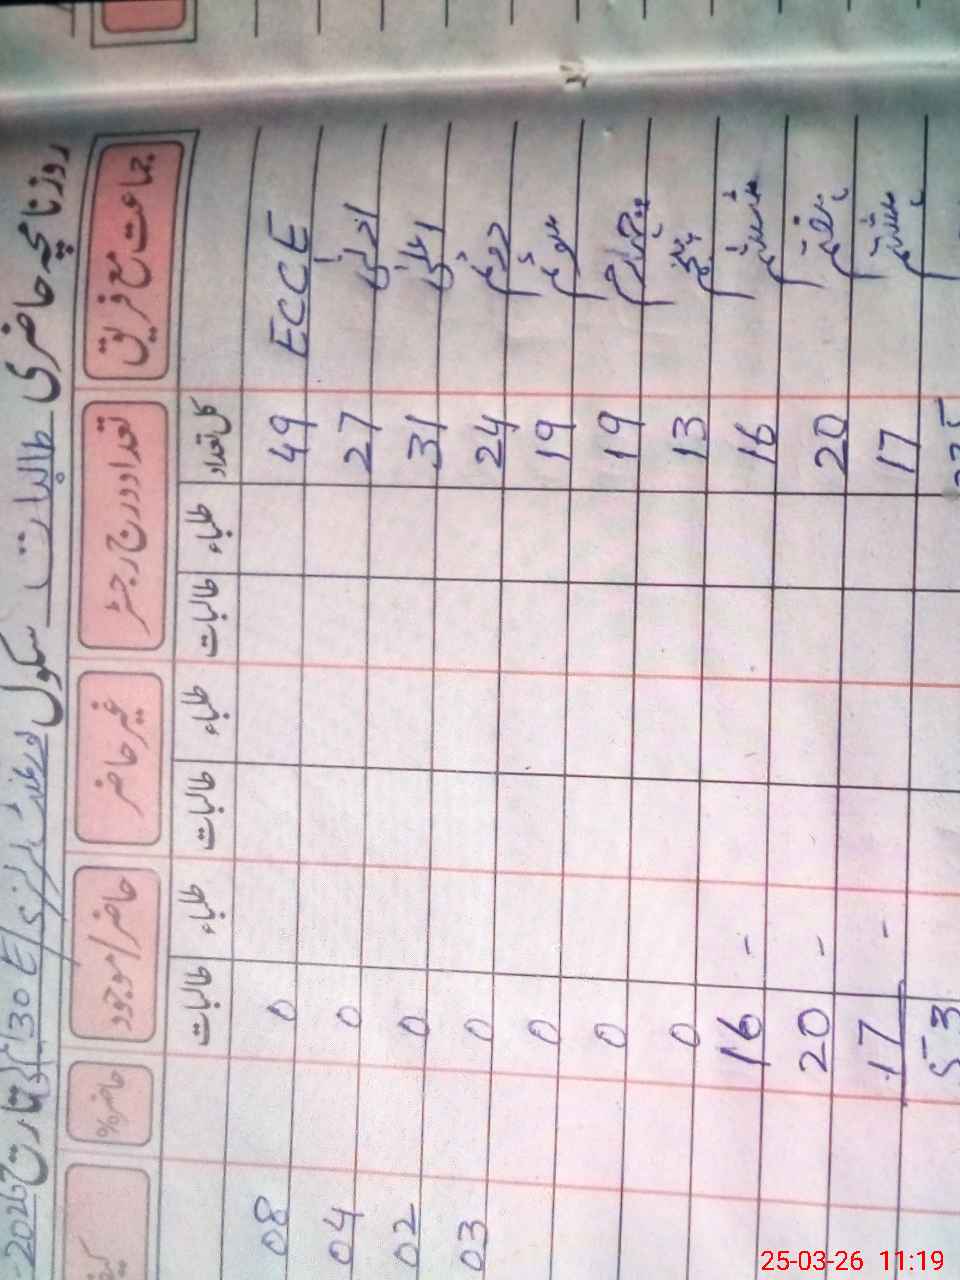 روزنامچہ حاضری طالبات سکول گورنمنٹ گرلز 130 E تاریخ 2026
جماعت مع فریق تعداد درج رجسٹر غیر حاضر حاضر/موجود حاضر%
کل تعداد طلباء طالبات طلباء طالبات طلباء طالبات
ECCE 49 0 08
27 0 04
31 0 02
دوم 24 0 03
سوم 19 0
چہارم 19 0
پنجم 13 0
ششم 16 - 16
ہفتم 20 - 20
ہشتم 17 - 17
235 53
25-03-26 11:19